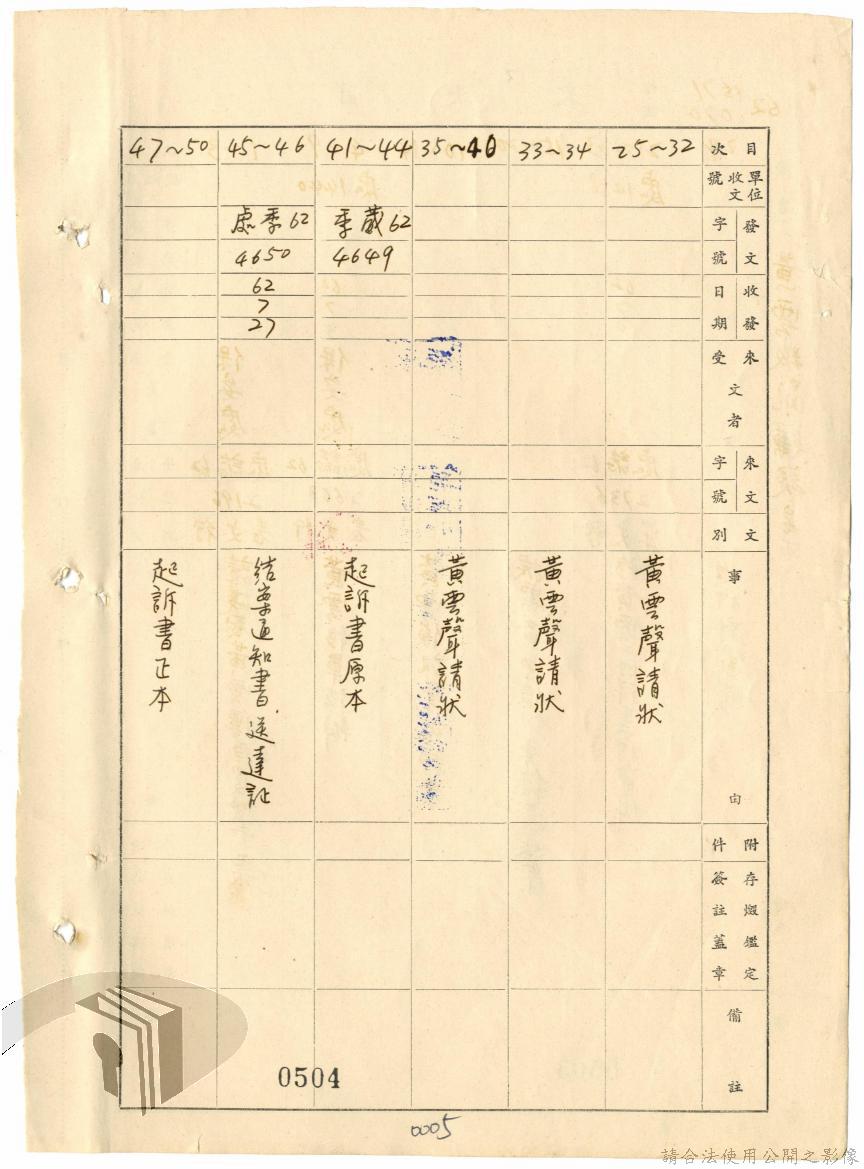 目次
單位收文號
發文字號
收發日期
來受文者
來文字號
文別
事由
附件
存燬鑑定簽註蓋章
備註
25~32
黃雲聲請狀
33~34
黃雲聲請狀
35~40
黃雲聲請狀
41~44
62
4649
起訴書原本
45~46
62
4650
62
7
27
結案通知書.送達証
47~50
起訴書正本
0504
0005
請合法使用公開之影像